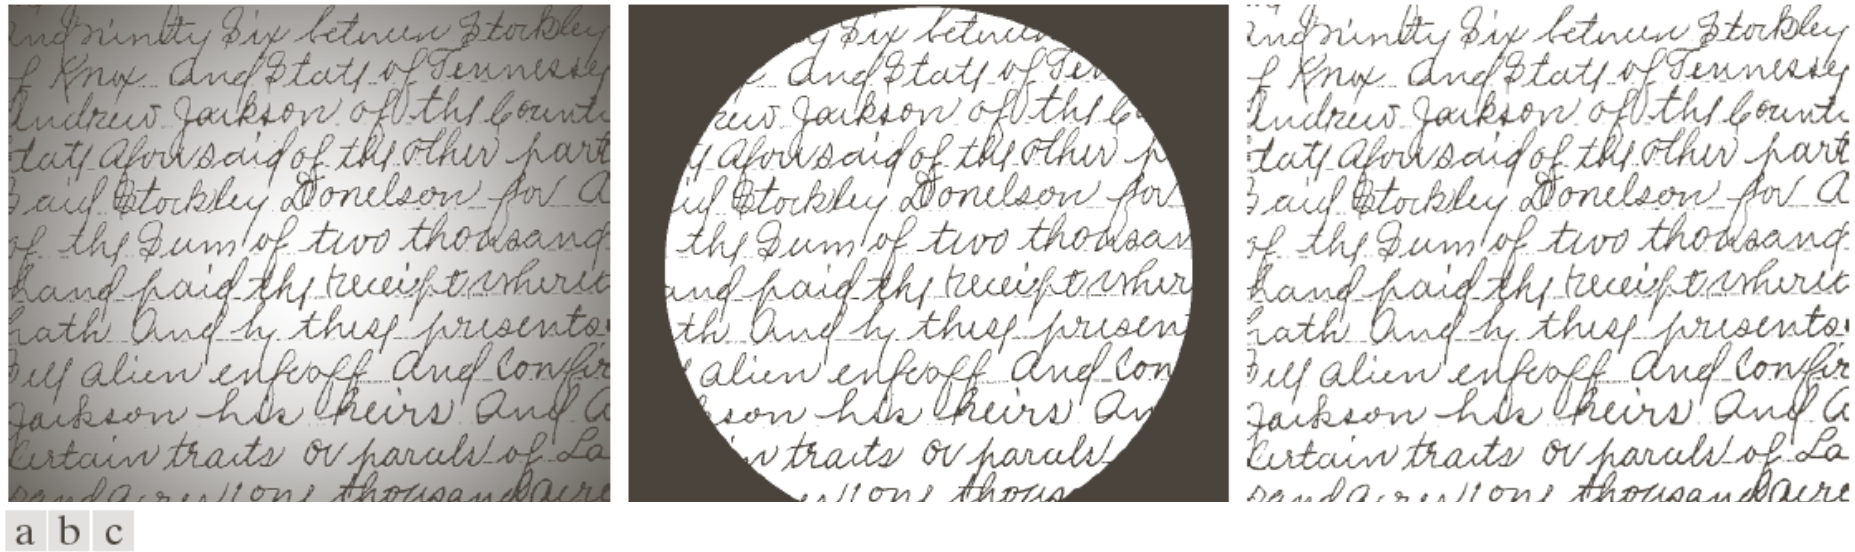 and ninity Six between Stockley
of Knox And State of Tennessey
Andrew Jackson of the Count
tate Aforesaid of the other part
Said Stockley Donelson for A
of the Sum of two thousand
hand paid the receipt wherit
hath And by these presents
sell alien enfeoff And Confir
Jackson his heirs And A
Certain traits or parcels of La
sand Acres one thousand acre
y Six between
And State of Ten
rew Jackson of the C
Aforesaid of the other p
id Stockley Donelson for
the Sum of two thousan
and paid the receipt wher
th And by these presen
alien enfeoff And Con
kson his heirs An
in traits or parcels
one thous
and ninity Six between Stockley
of Knox And State of Tennessey
Andrew Jackson of the Count
tate Aforesaid of the other part
Said Stockley Donelson for A
of the Sum of two thousand
hand paid the receipt wherit
hath And by these presents
sell alien enfeoff And Confir
Jackson his heirs And A
Certain traits or parcels of La
sand Acres one thousand acre
a b c